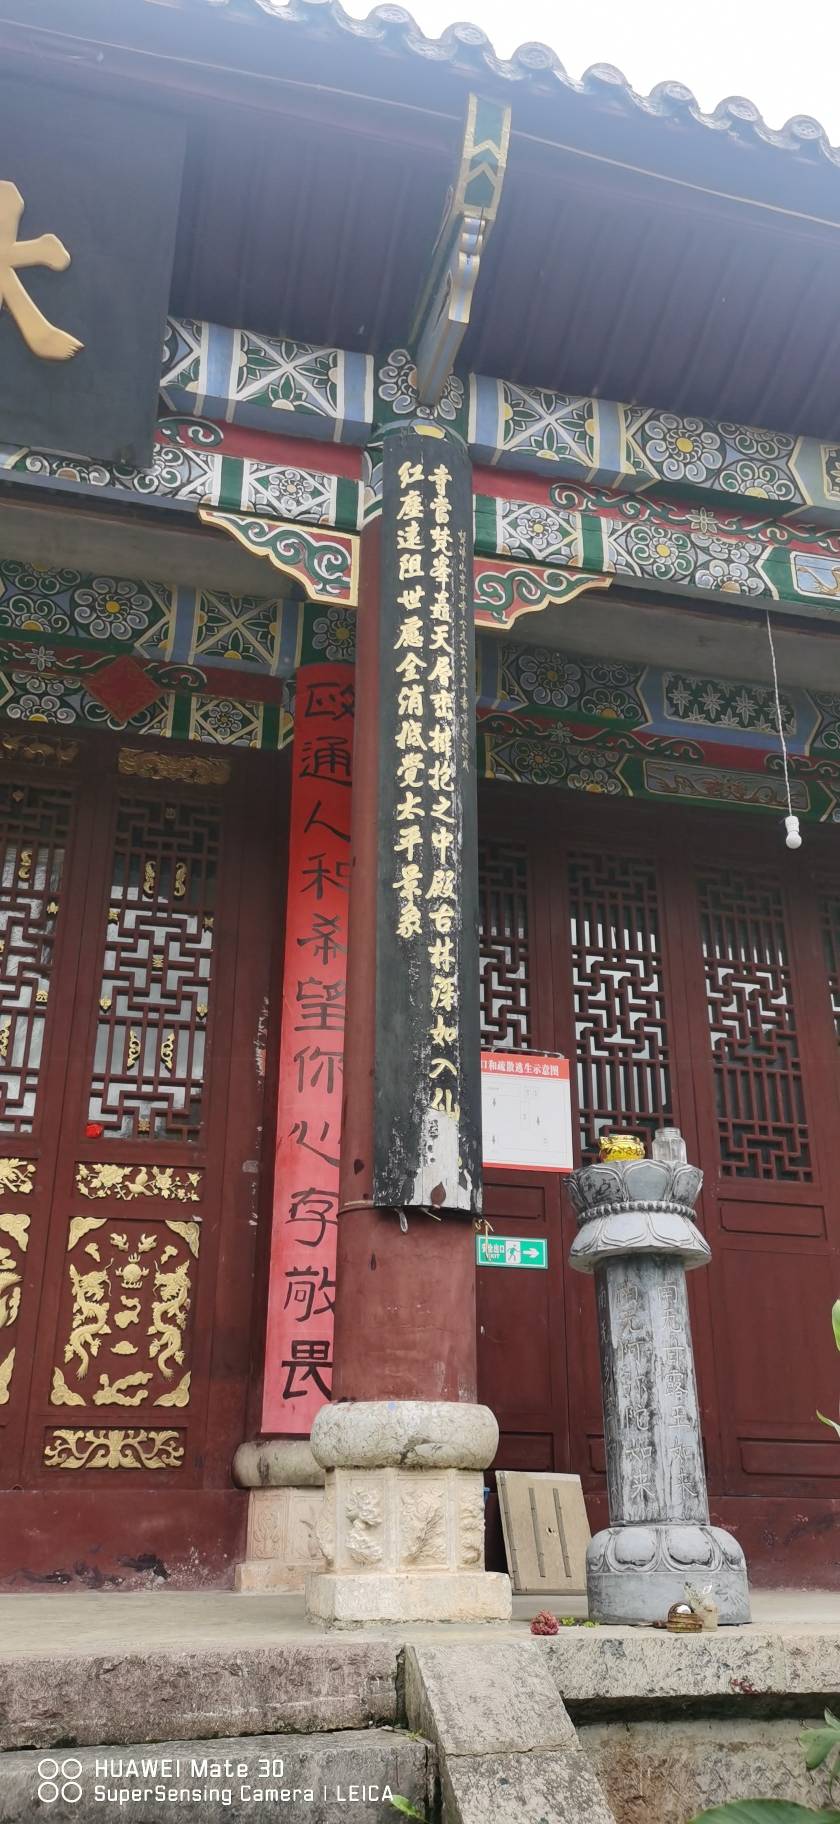 大
寺当梵峯矗天層巒擁抱之中殿古林深如入仙
红塵遠阻世慮全消抵覺太平景象
政通人和希望你心存敬畏
口和疏散逃生示意图
安全出口
EXIT
南无甘露王如来
南无阿弥陀如来
HUAWEI Mate 30
SuperSensing Camera | LEICA